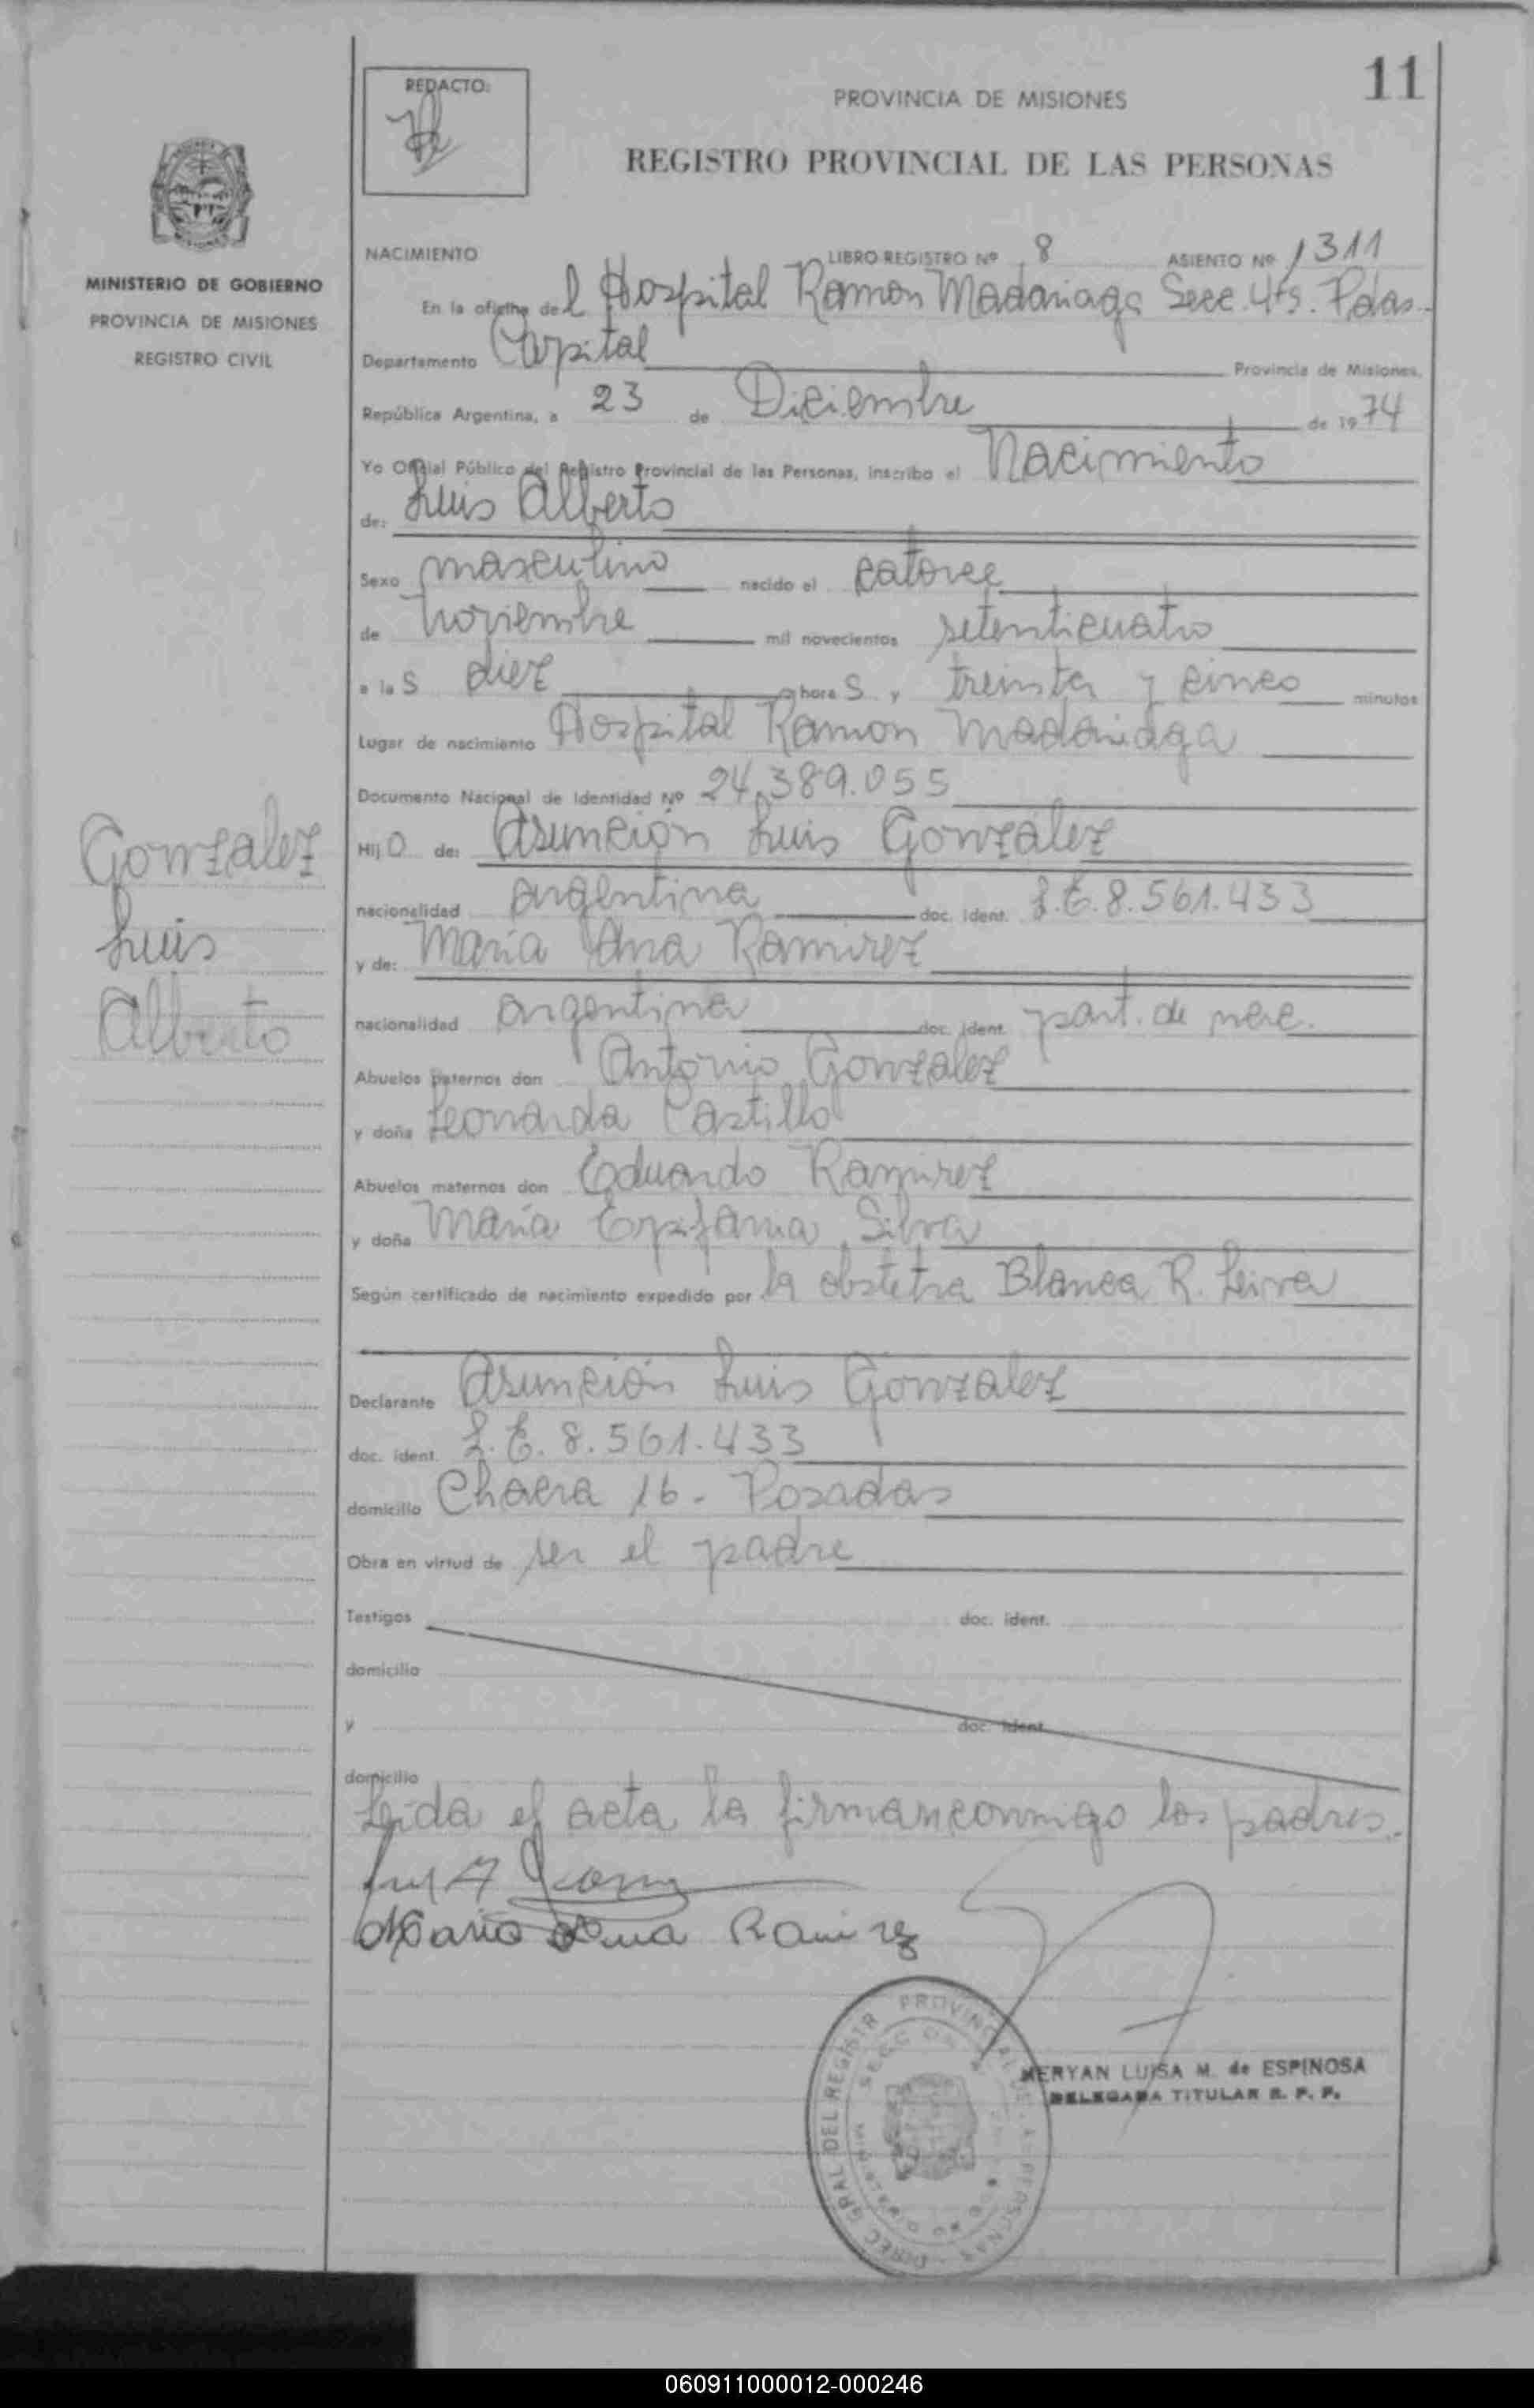 11
REDACTO:
PROVINCIA DE MISIONES
REGISTRO PROVINCIAL DE LAS PERSONAS
MINISTERIO DE GOBIERNO
PROVINCIA DE MISIONES
REGISTRO CIVIL
NACIMIENTO LIBRO REGISTRO Nº 8 ASIENTO Nº 1311
En la oficina del Hospital Ramon Madariaga Secc. 4ta. Pdas.
Departamento Capital Provincia de Misiones,
República Argentina, a 23 de Diciembre de 1974
Yo Oficial Público del Registro Provincial de las Personas, inscribo el Nacimiento
de: Luis Alberto
Sexo masculino nacido el catorce
de noviembre mil novecientos setenticuatro
a las diez horas y treinta y cinco minutos
Lugar de nacimiento Hospital Ramon Madariaga
Documento Nacional de Identidad Nº 24.389.055
Gonzalez
Luis
Alberto
Hijo de: Asunción Luis González
nacionalidad argentina doc. ident. L.E. 8.561.433
y de: María Ana Ramirez
nacionalidad argentina doc. ident. part. de nac.
Abuelos paternos don Antonio Gonzalez
y doña Leonarda Castillo
Abuelos maternos don Eduardo Ramirez
y doña María Epifania Silva
Según certificado de nacimiento expedido por la obstetra Blanca R. Leiva
Declarante Asunción Luis Gonzalez
doc. ident. L.E. 8.561.433
domicilio Chacra 16 - Posadas
Obra en virtud de ser el padre
Testigos doc. ident.
domicilio
y doc. ident.
domicilio
Leída el acta la firman conmigo los padres.
Maria Ana Ramirez
DIREC. GRAL. DEL REGISTR. PROVINCIAL DE LAS PERSONAS
MERYAN LUISA M. de ESPINOSA
DELEGADA TITULAR R. P. P.
060911000012-000246